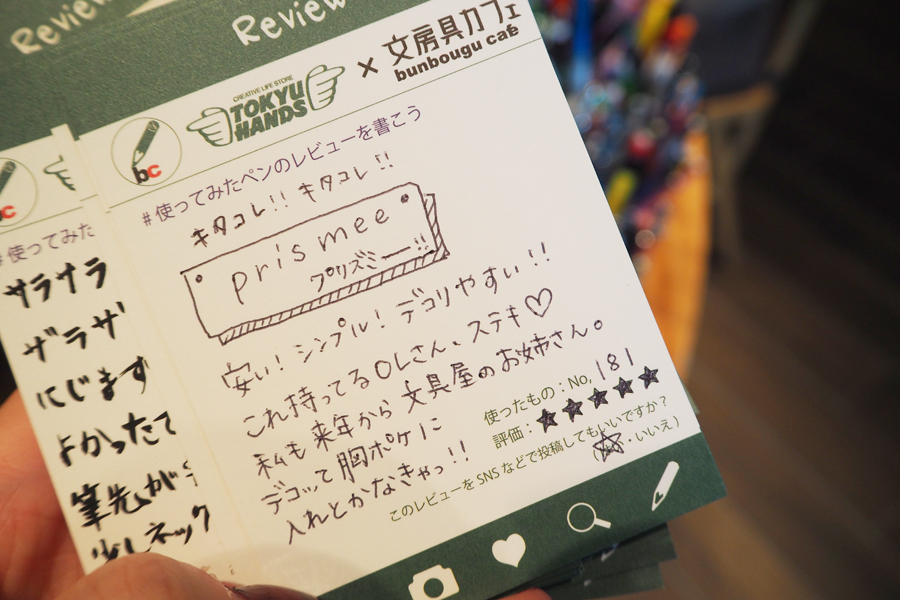 Review
Review
CREATIVE LIFE STORE
TOKYU
HANDS
×
文房具カフェ
bunbougu café
bc
#使ってみたペンのレビューを書こう
キタコレ!! キタコレ!!
prismee
プリズミー!!
安い! シンプル! デコリやすい!!
これ持ってるOLさん、ステキ♡
私も来年から文具屋のお姉さん。
デコッて胸ポケに
入れとかなきゃっ!!
使ったもの:No, 181
評価:★★★★★
このレビューをSNSなどで投稿してもいいですか?
(はい・いいえ)
c
#使ってみた
サラサラ
ザラザ
にじます
よかったて
筆先が
少しネック